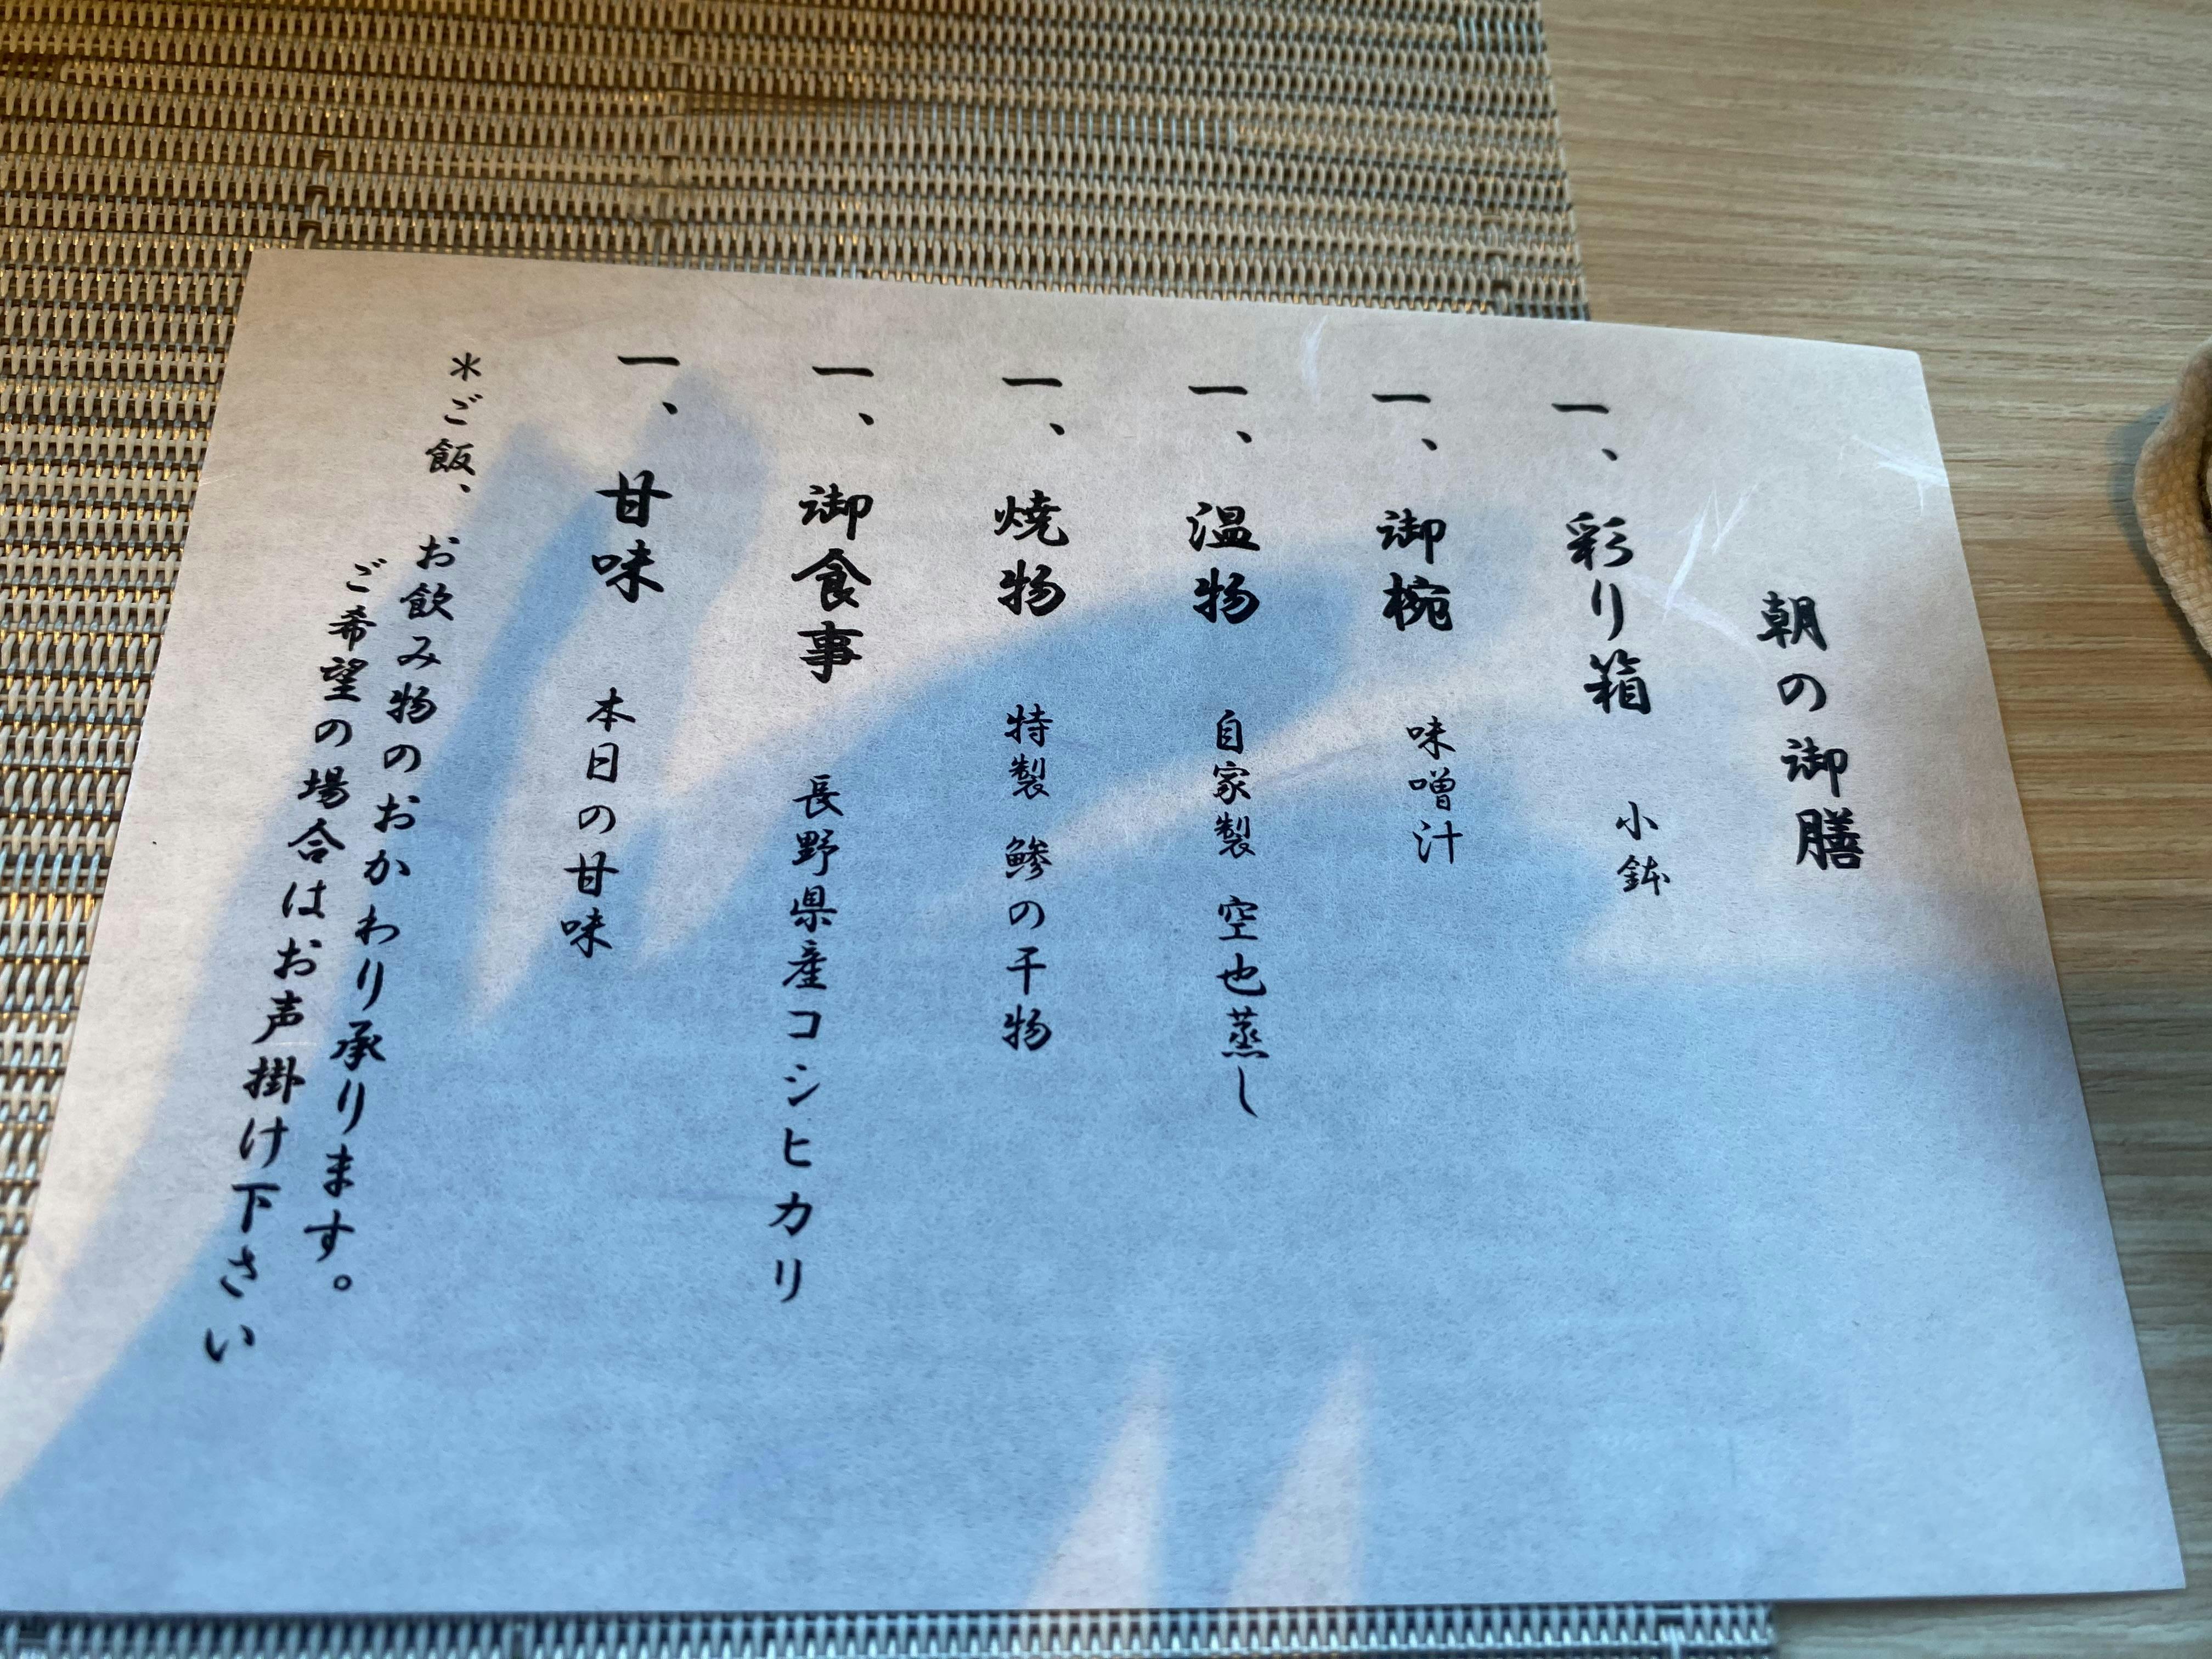 朝の御膳
一、彩り箱 小鉢
一、御椀 味噌汁
一、温物 自家製 空也蒸し
一、焼物 特製 鯵の干物
一、御食事 長野県産コシヒカリ
一、甘味 本日の甘味
＊ご飯、お飲み物のおかわり承ります。
ご希望の場合はお声掛け下さい